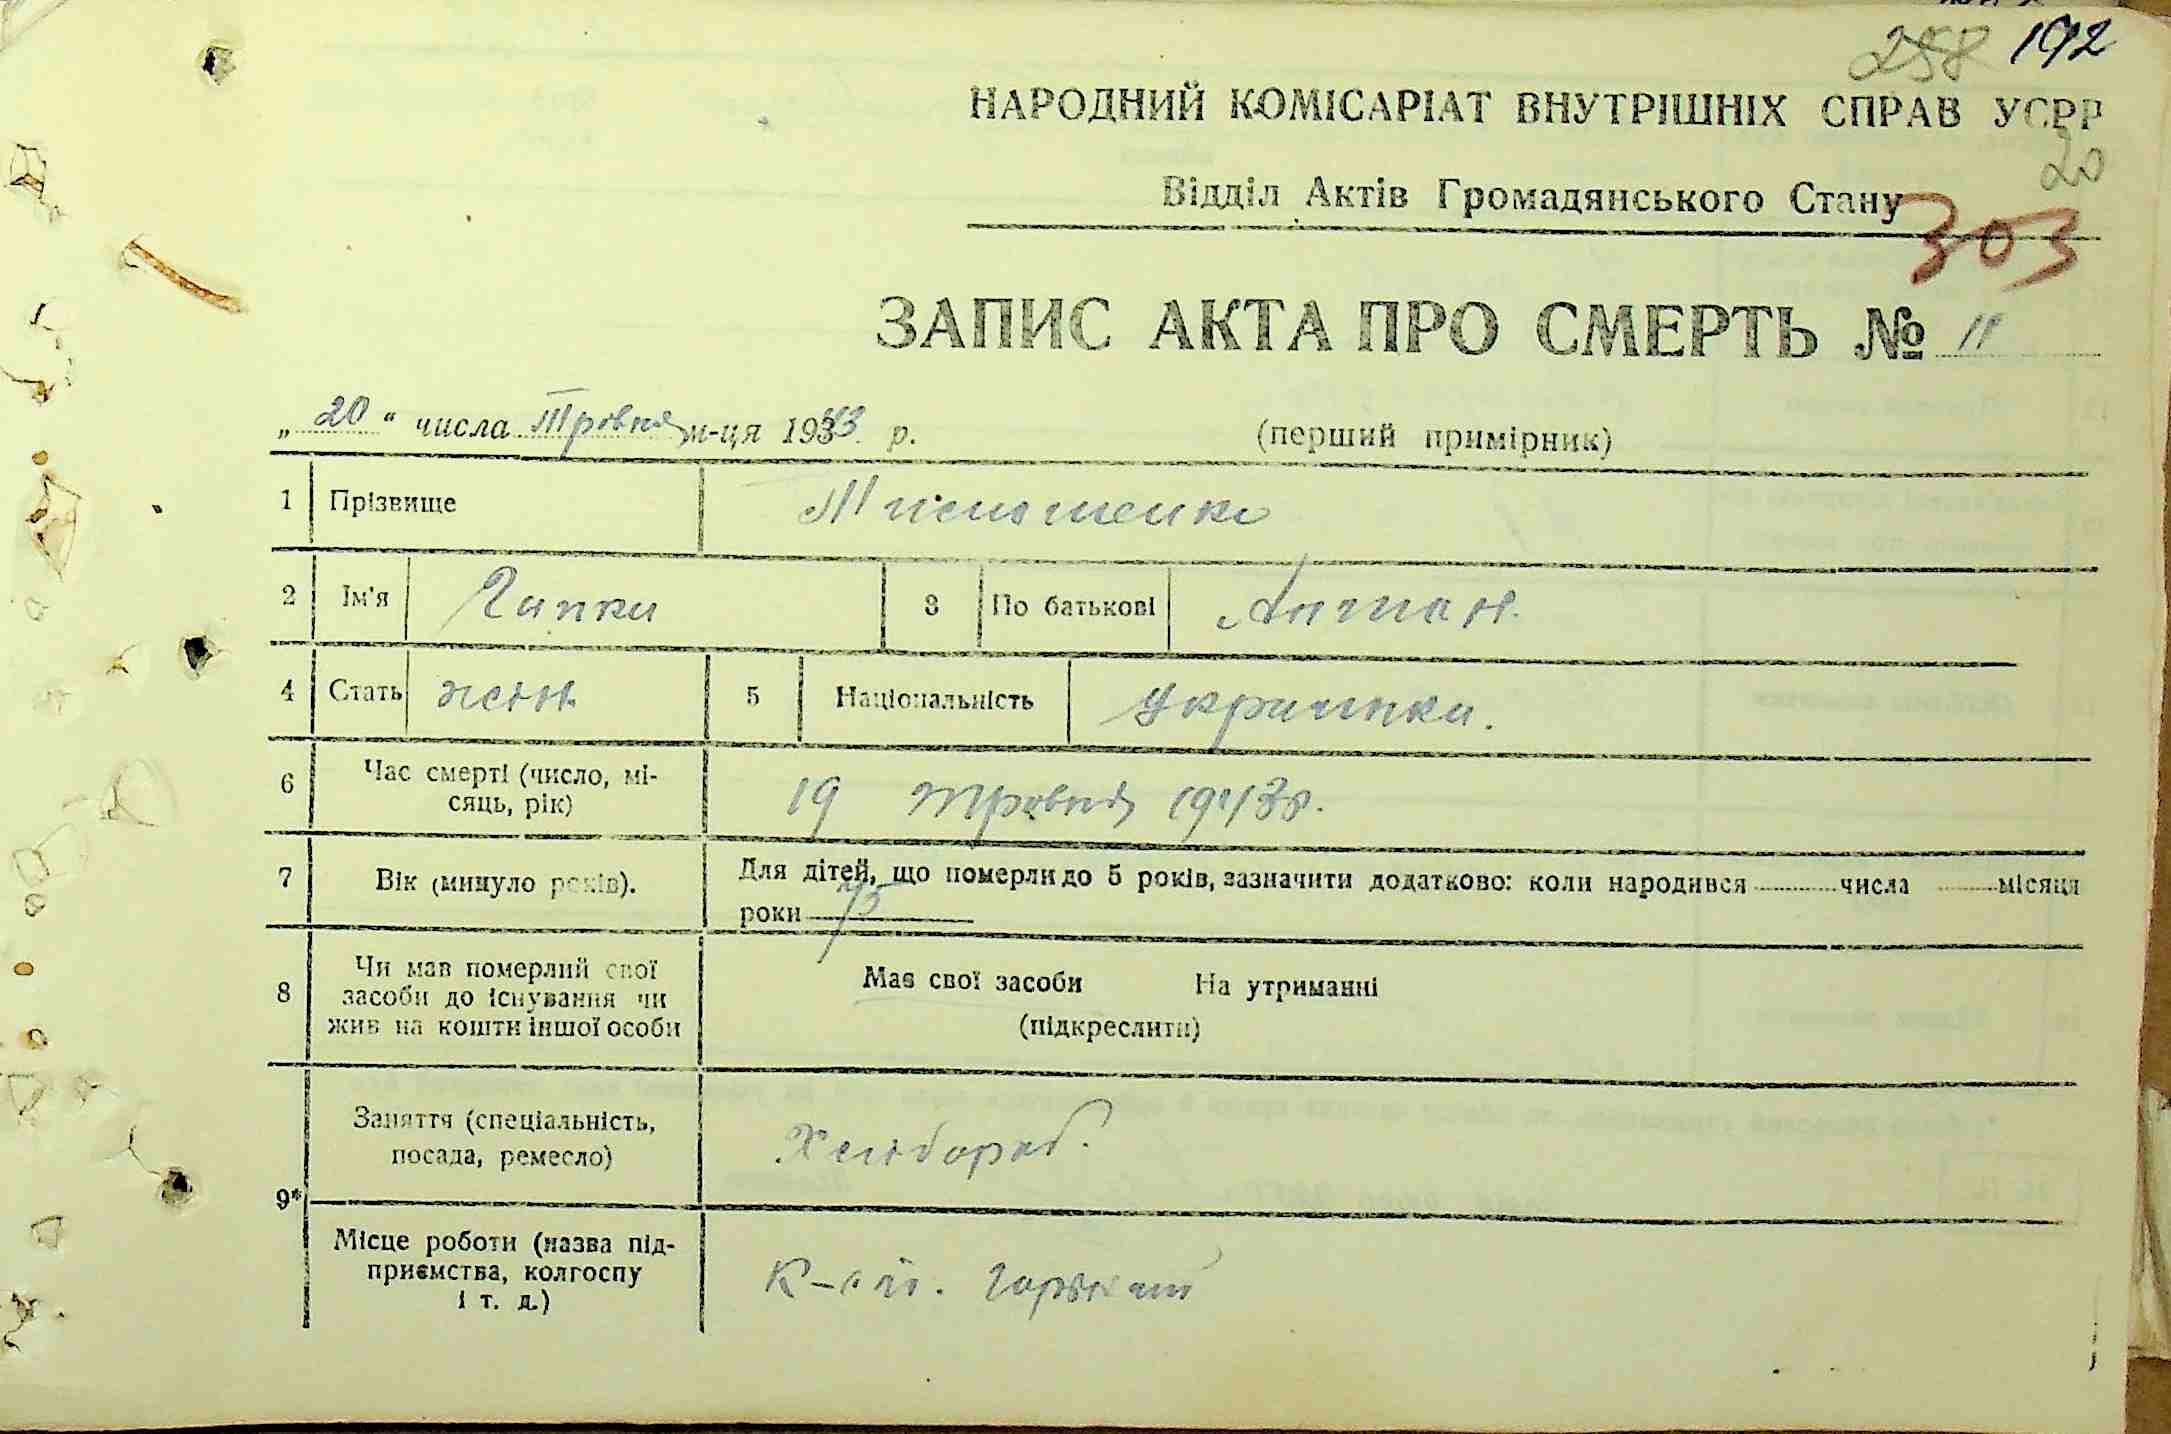 258 192
НАРОДНИЙ КОМІСАРІАТ ВНУТРІШНІХ СПРАВ УСРР
20
Відділ Актів Громадянського Стану
303
ЗАПИС АКТА ПРО СМЕРТЬ № 11
„ 20 “ числа Тровня м-ця 193 43 р. (перший примірник)
1 Прізвище Тимошенко
2 Ім'я Гапка 3 По батькові Антон.
4 Стать жін. 5 Національність українка.
6 Час смерті (число, мі-
сяць, рік) 19 тровня 1943 р.
7 Вік (минуло років). Для дітей, що померли до 5 років, зазначити додатково: коли народився числа місяця
роки 75
8 Чи мав померлий свої
засоби до існування чи
жив на кошти іншої особи
Має свої засоби На утриманні
(підкреслити)
9* Заняття (спеціальність,
посада, ремесло) Хлібороб.
Місце роботи (назва під-
приємства, колгоспу
і т. д.)